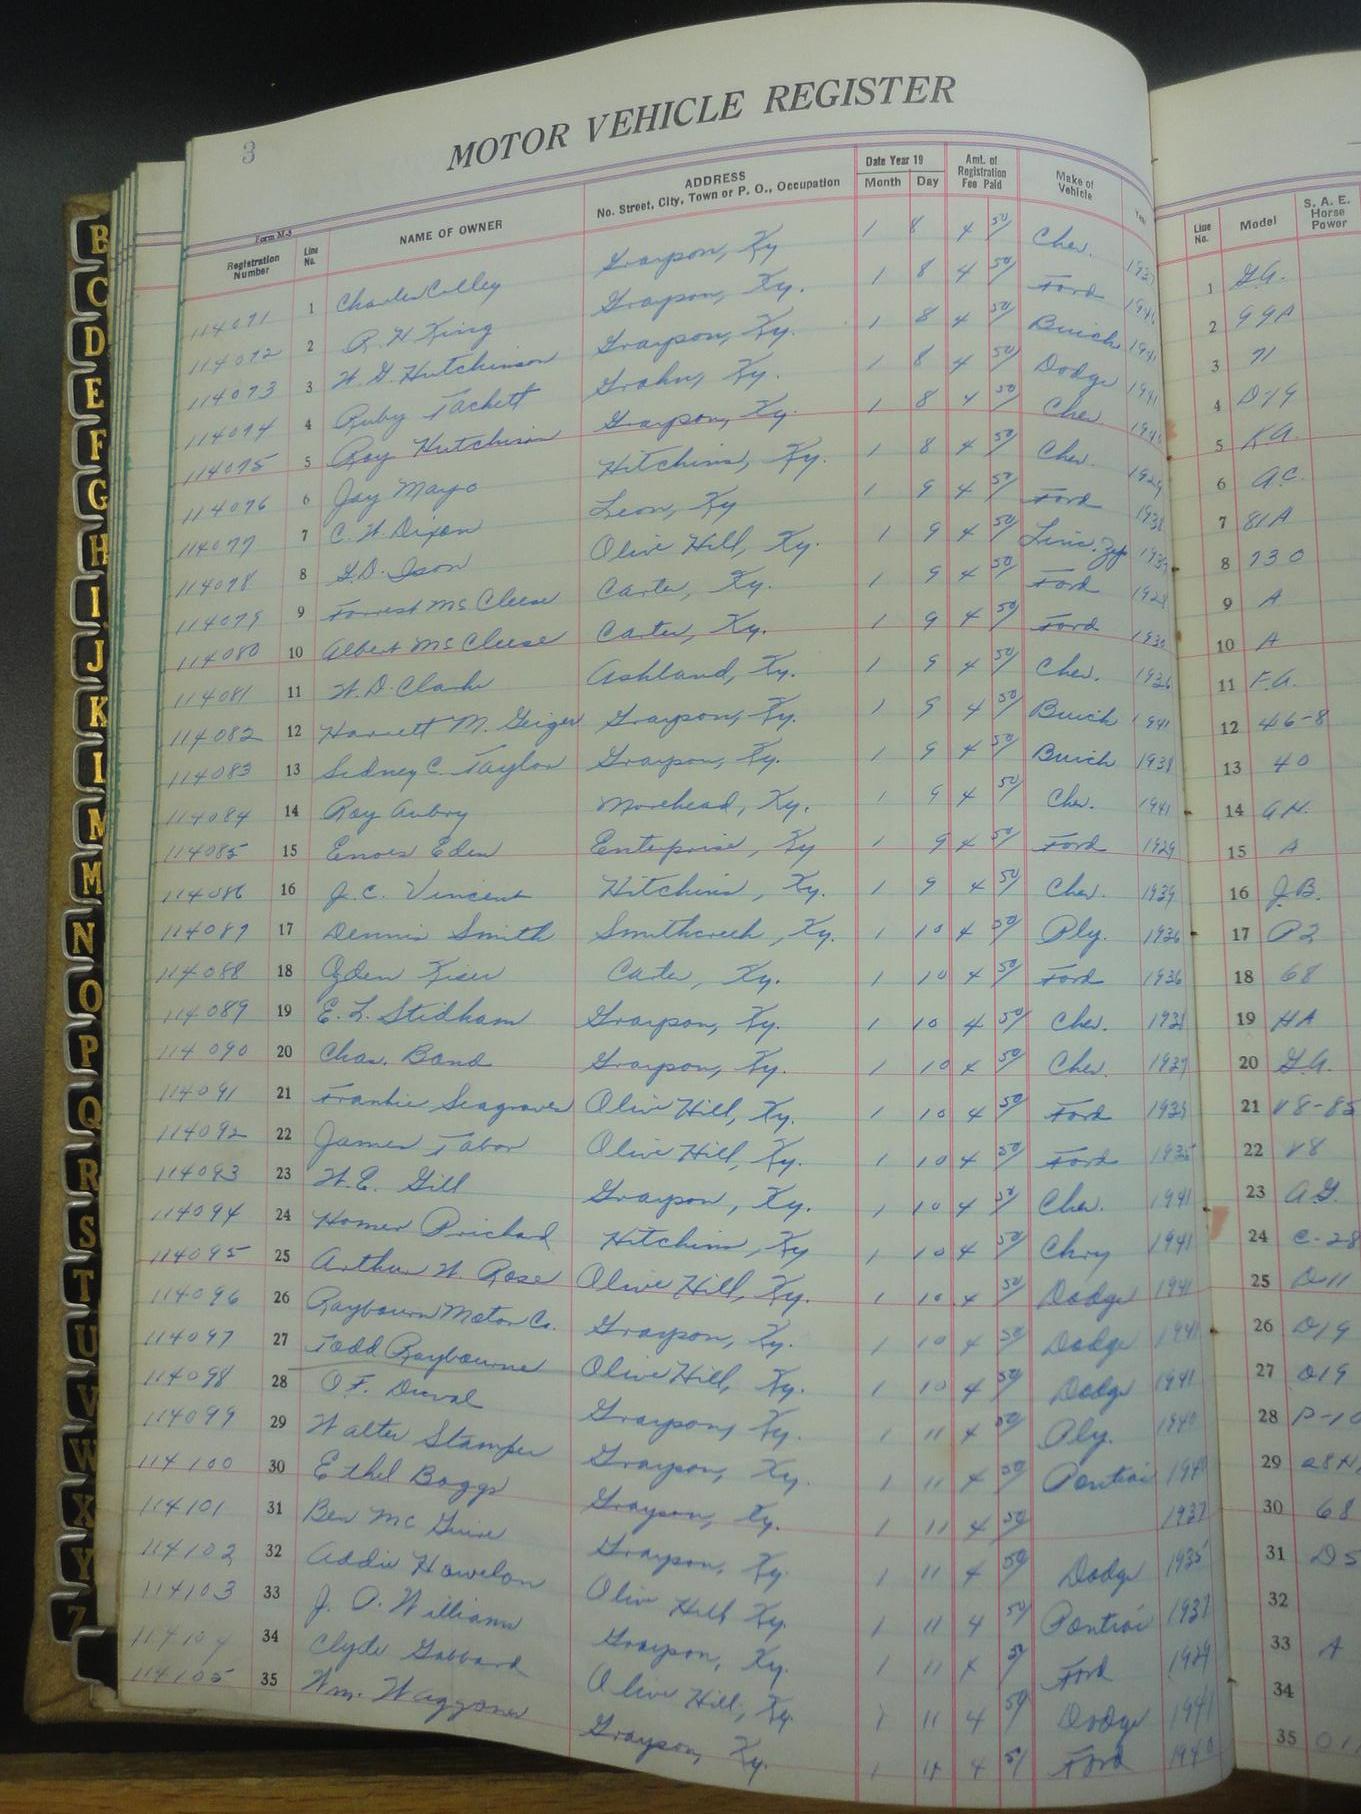 3
MOTOR VEHICLE REGISTER
Form M-3
Registration Number Line No. NAME OF OWNER ADDRESS No. Street, City, Town or P. O., Occupation Date Year 19 Month Day Amt. of Registration Fee Paid Make of Vehicle Line No. Model S. A. E. Horse Power
114071 1 Charles Colley Grayson, Ky 1 8 4 50/ Chev. 1937 1 G.A.
114072 2 R. H King Grayson, Ky. 1 8 4 50/ Ford 2 99A
114073 3 W. G. Hutchinson Grayson, Ky. 1 8 4 50/ Buick 1941 3 71
114074 4 Ruby Tackett Grahn, Ky. 1 8 4 50/ Dodge 1941 4 D-19
114075 5 Roy Hutchison Grayson, Ky. 1 8 4 50/ Chev 5 K.A.
114076 6 Jay Mayo Hitchins, Ky. 1 8 4 50/ Chev. 1929 6 A.C.
114077 7 C. W. Dixon Leon, Ky 1 9 4 50/ Ford 1938 7 81A
114078 8 G.D. Ison Olive Hill, Ky. 1 9 4 50/ Linc. Zep 8 730
114079 9 Forrest McCleese Carter, Ky. 1 9 4 50/ Ford 1928 9 A
114080 10 Albert McCleese Carter, Ky. 1 9 4 50/ Ford 1930 10 A
114081 11 W. D. Clark Ashland, Ky. 1 9 4 50/ Chev. 1936 11 F.A.
114082 12 Harriett M. Geiger Grayson, Ky. 1 9 4 50/ Buick 1941 12 46-8
114083 13 Sidney C. Taylor Grayson, Ky. 1 9 4 50/ Buick 1938 13 40
114084 14 Roy Aubry Morehead, Ky. 1 9 4 50/ Chev. 1941 14 A.H.
114085 15 Eden Enterprise, Ky 1 9 4 50/ Ford 1929 15 A
114086 16 J. C. Vincent Hitchins, Ky. 1 9 4 50/ Chev. 1939 16 J.B.
114087 17 Dennis Smith Smithcreek, Ky. 1 10 4 50/ Ply. 1936 17 P2
114088 18 Ogden Kiser Carter, Ky. 1 10 4 50/ Ford 1936 18 68
114089 19 E. L. Stidham Grayson, Ky. 1 10 4 50/ Chev. 1938 19 HA
114090 20 Chas. Bond Grayson, Ky. 1 10 4 50/ Chev. 1937 20 G.A.
114091 21 Frankie Seagraves Olive Hill, Ky. 1 10 4 50/ Ford 21 V8-85
114092 22 James Tabor Olive Hill, Ky. 1 10 4 50/ Ford 1935 22 V8
114093 23 W.E. Gill Grayson, Ky. 1 10 4 50/ Chev. 1941 23 A.G.
114094 24 Homer Prichard Hitchins, Ky 1 10 4 50/ Chry 1941 24 C-28
114095 25 Arthur W. Rose Olive Hill, Ky. 1 10 4 50/ Dodge 1941 25 D-11
114096 26 Raybourn Motor Co. Grayson, Ky. 1 10 4 50/ Dodge 1941 26 D19
114097 27 Todd Raybourne Olive Hill, Ky. 1 10 4 50/ Dodge 1941 27 D19
114098 28 O.F. Duval Grayson, Ky. 1 11 4 50/ Ply. 1940 28 P-10
114099 29 Walter Stamper Grayson, Ky. 1 11 4 50/ Pontiac 1940 29
114100 30 Ethel Boggs Grayson, Ky. 1 11 4 50/ 1937 30 68
114101 31 Ben McGuire Grayson, Ky. 1 11 4 50/ Dodge 1935 31 D5
114102 32 Addie Olive Hill Ky. 1 11 4 50/ Pontiac 1937 32
114103 33 J. P. Williams Grayson, Ky. 1 11 4 50/ Ford 1929 33 A
114104 34 Clyde Gabbard Olive Hill, Ky. 1 11 4 50/ Dodge 1941 34
114105 35 Wm. Waggoner Grayson, Ky. 1 11 4 50/ Ford 1940 35
B
C
D
E
F
G
H
I
J
K
L
M
M
N
O
P
Q
R
S
T
U
V
W
X
Y
Z